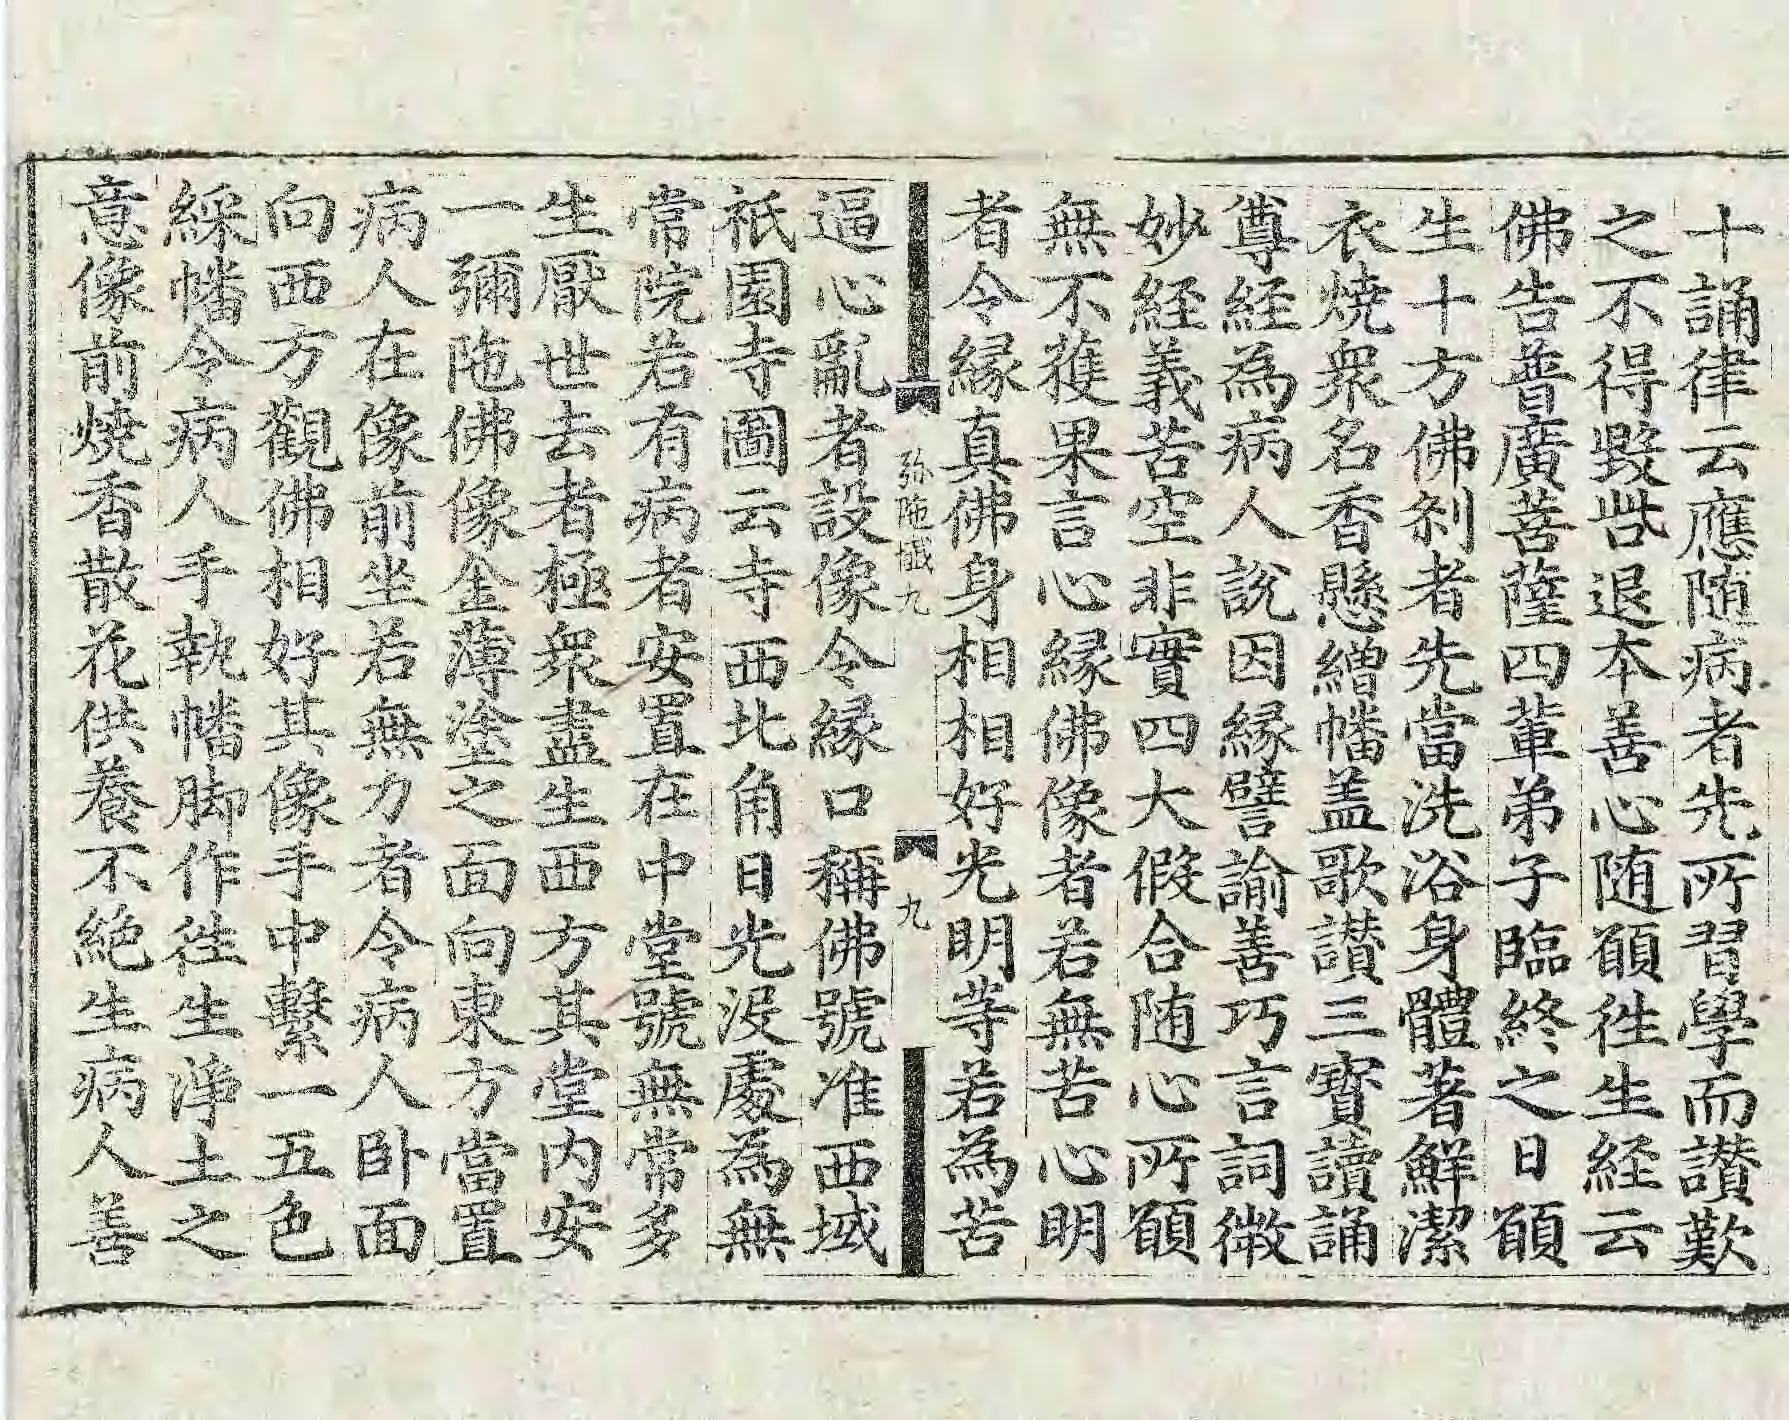 十誦律云應随病者先所習學而讃歎
之不得毀呰退本善心随願徃生経云
佛告普廣菩薩四輩弟子臨終之日願
生十方佛刹者先當洗浴身體著鮮潔
衣焼衆名香懸繒幡盖歌讃三寳讀誦
尊経為病人說因縁譬諭善巧言詞微
妙経義苦空非實四大假合随心所願
無不獲果言心縁佛像者若無苦心明
者令縁真佛身相相好光明等若為苦
弥陁懴九
九
逼心亂者設像令縁口稱佛號准西域
祇園寺圖云寺西北角日光没處為無
常院若有病者安置在中堂號無常多
生厭世去者極衆盡生西方其堂内安
一彌陁佛像金薄塗之面向東方當置
病人在像前坐若無力者令病人卧面
向西方觀佛相好其像手中繫一五色
綵幡令病人手執幡脚作徃生淨土之
意像前焼香散花供養不絶生病人善